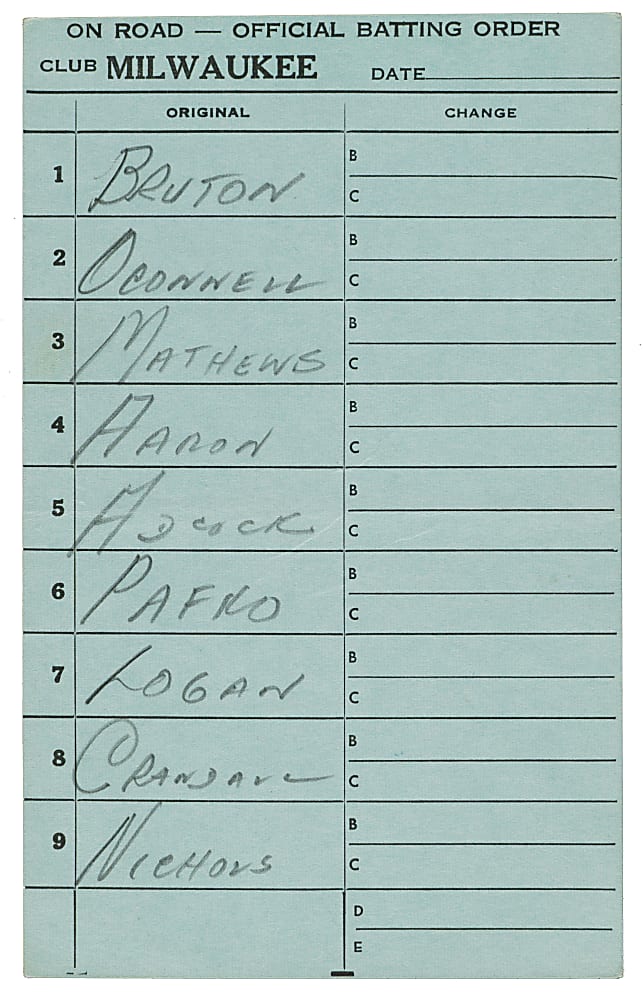 ON ROAD — OFFICIAL BATTING ORDER
CLUB MILWAUKEE DATE
ORIGINAL CHANGE
1 BRUTON B
C
2 OCONNELL B
C
3 MATHEWS B
C
4 AARON B
C
5 ADCOCK B
C
6 PAFKO B
C
7 LOGAN B
C
8 CRANDALL B
C
9 NICHOLS B
C
D
E